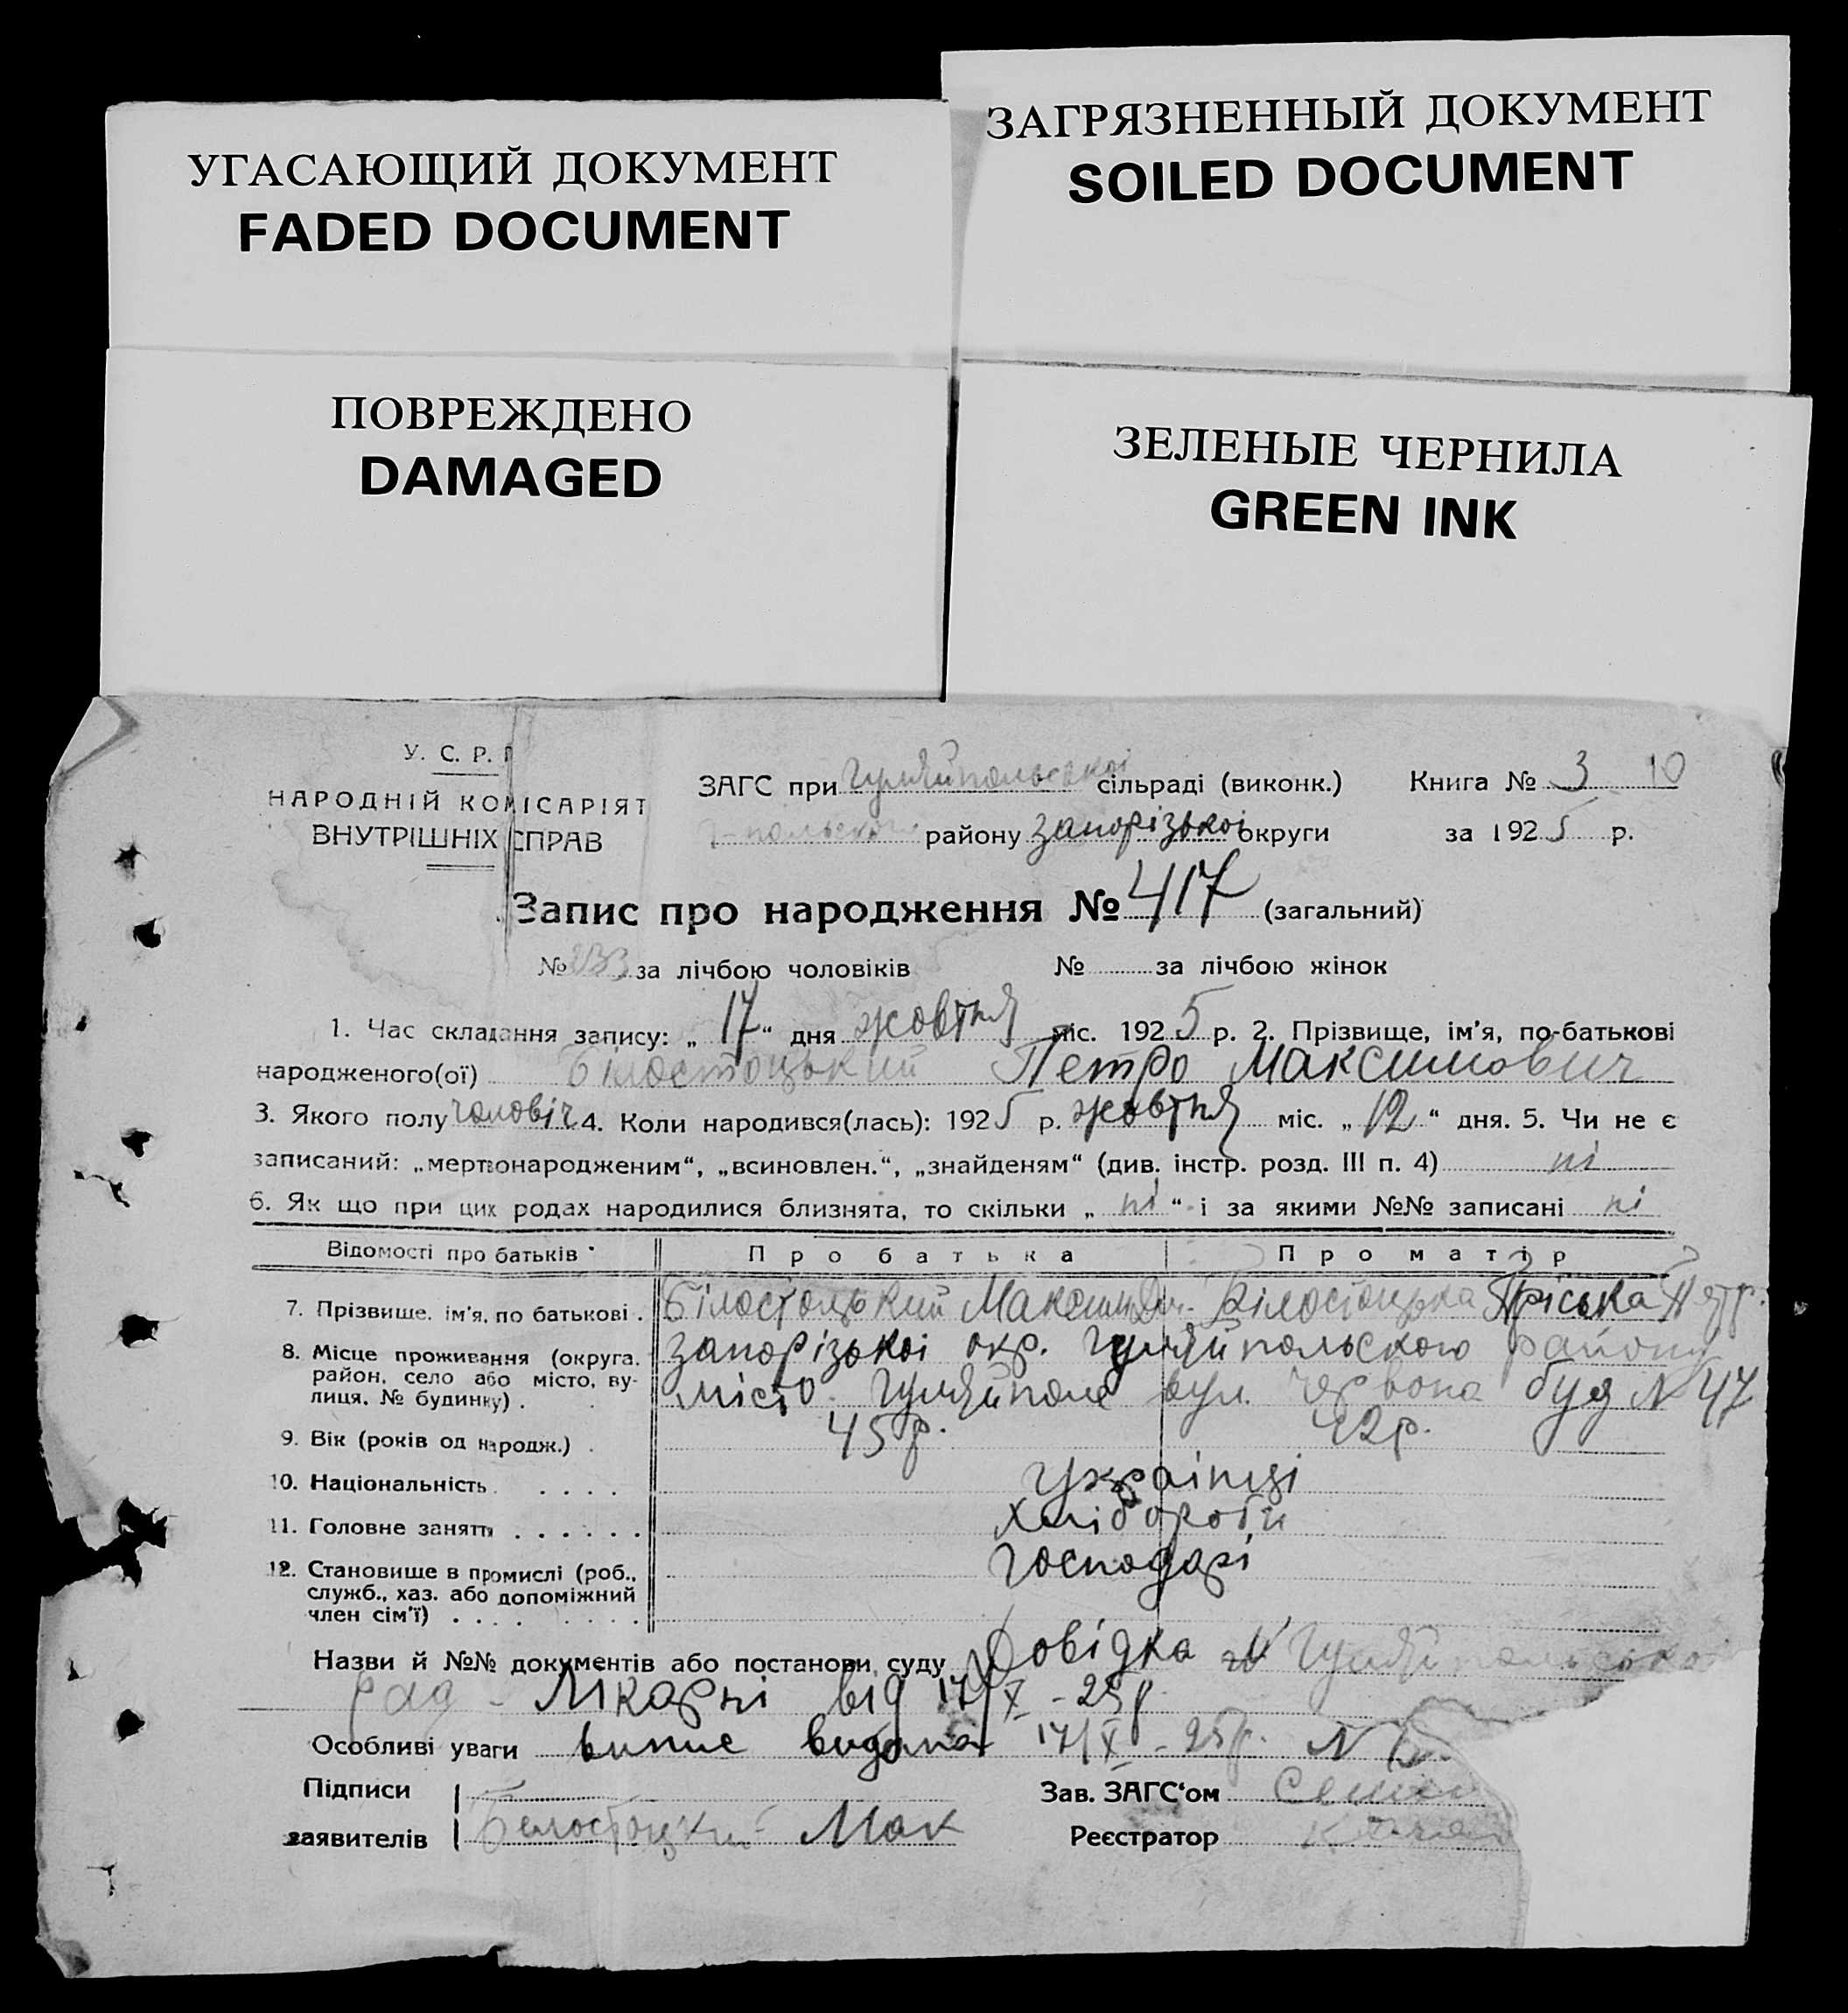 УГАСАЮЩИЙ ДОКУМЕНТ
FADED DOCUMENT
ЗАГРЯЗНЕННЫЙ ДОКУМЕНТ
SOILED DOCUMENT
ПОВРЕЖДЕНО
DAMAGED
ЗЕЛЕНЫЕ ЧЕРНИЛА
GREEN INK
У. С. Р. Р
НАРОДНІЙ КОМІСАРІЯТ
ВНУТРІШНІХ СПРАВ
ЗАГС при Гуляйпольської сільраді (виконк.) Книга № 3 10
Г-польського району Запорізької округи за 1925 р.
Запис про народження № 417 (загальний)
№ за лічбою чоловіків № за лічбою жінок
1. Час складання запису: „ 17 “ дня жовтня міс. 1925 р. 2. Прізвище, ім'я, по-батькові
народженого(ої) Білостоцький Петро Максимович
3. Якого полу чоловіч 4. Коли народився(лась): 1925 р. жовтня міс. „ 12 “ дня. 5. Чи не є
записаний: „мертвонародженим“, „всиновлен.“, „знайденям“ (див. інстр. розд. III п. 4) ні
6. Як що при цих родах народилися близнята, то скільки „ ні “ і за якими №№ записані ні
Відомості про батьків Про батька Про матір
7. Прізвише, ім'я, по батькові . Білостоцький Максим Білостоцька Пріська Петр.
8. Місце проживання (округа, район, село або місто, вулиця, № будинку) . Запорізької окр. Гуляйпольского району
місто Гуляйполе вул. Червона буд N 47
9. Вік (років од народж.) . 45 р. 42 р.
10. Національність . . . . . українці
11. Головне заняття . . . . . . хлібороби
12. Становише в промислі (роб., служб., хаз. або допоміжний член сім'ї) . . . . . . . . господарі
Назви й №№ документів або постанови суду Довідка Гуляйпольської
рад - Лікарні від 17/X - 25 р
Особливі уваги випис видана 17/X - 25 р. N
Підписи
заявителів Белостоцкий Мак
Зав. ЗАГС'ом
Реєстратор